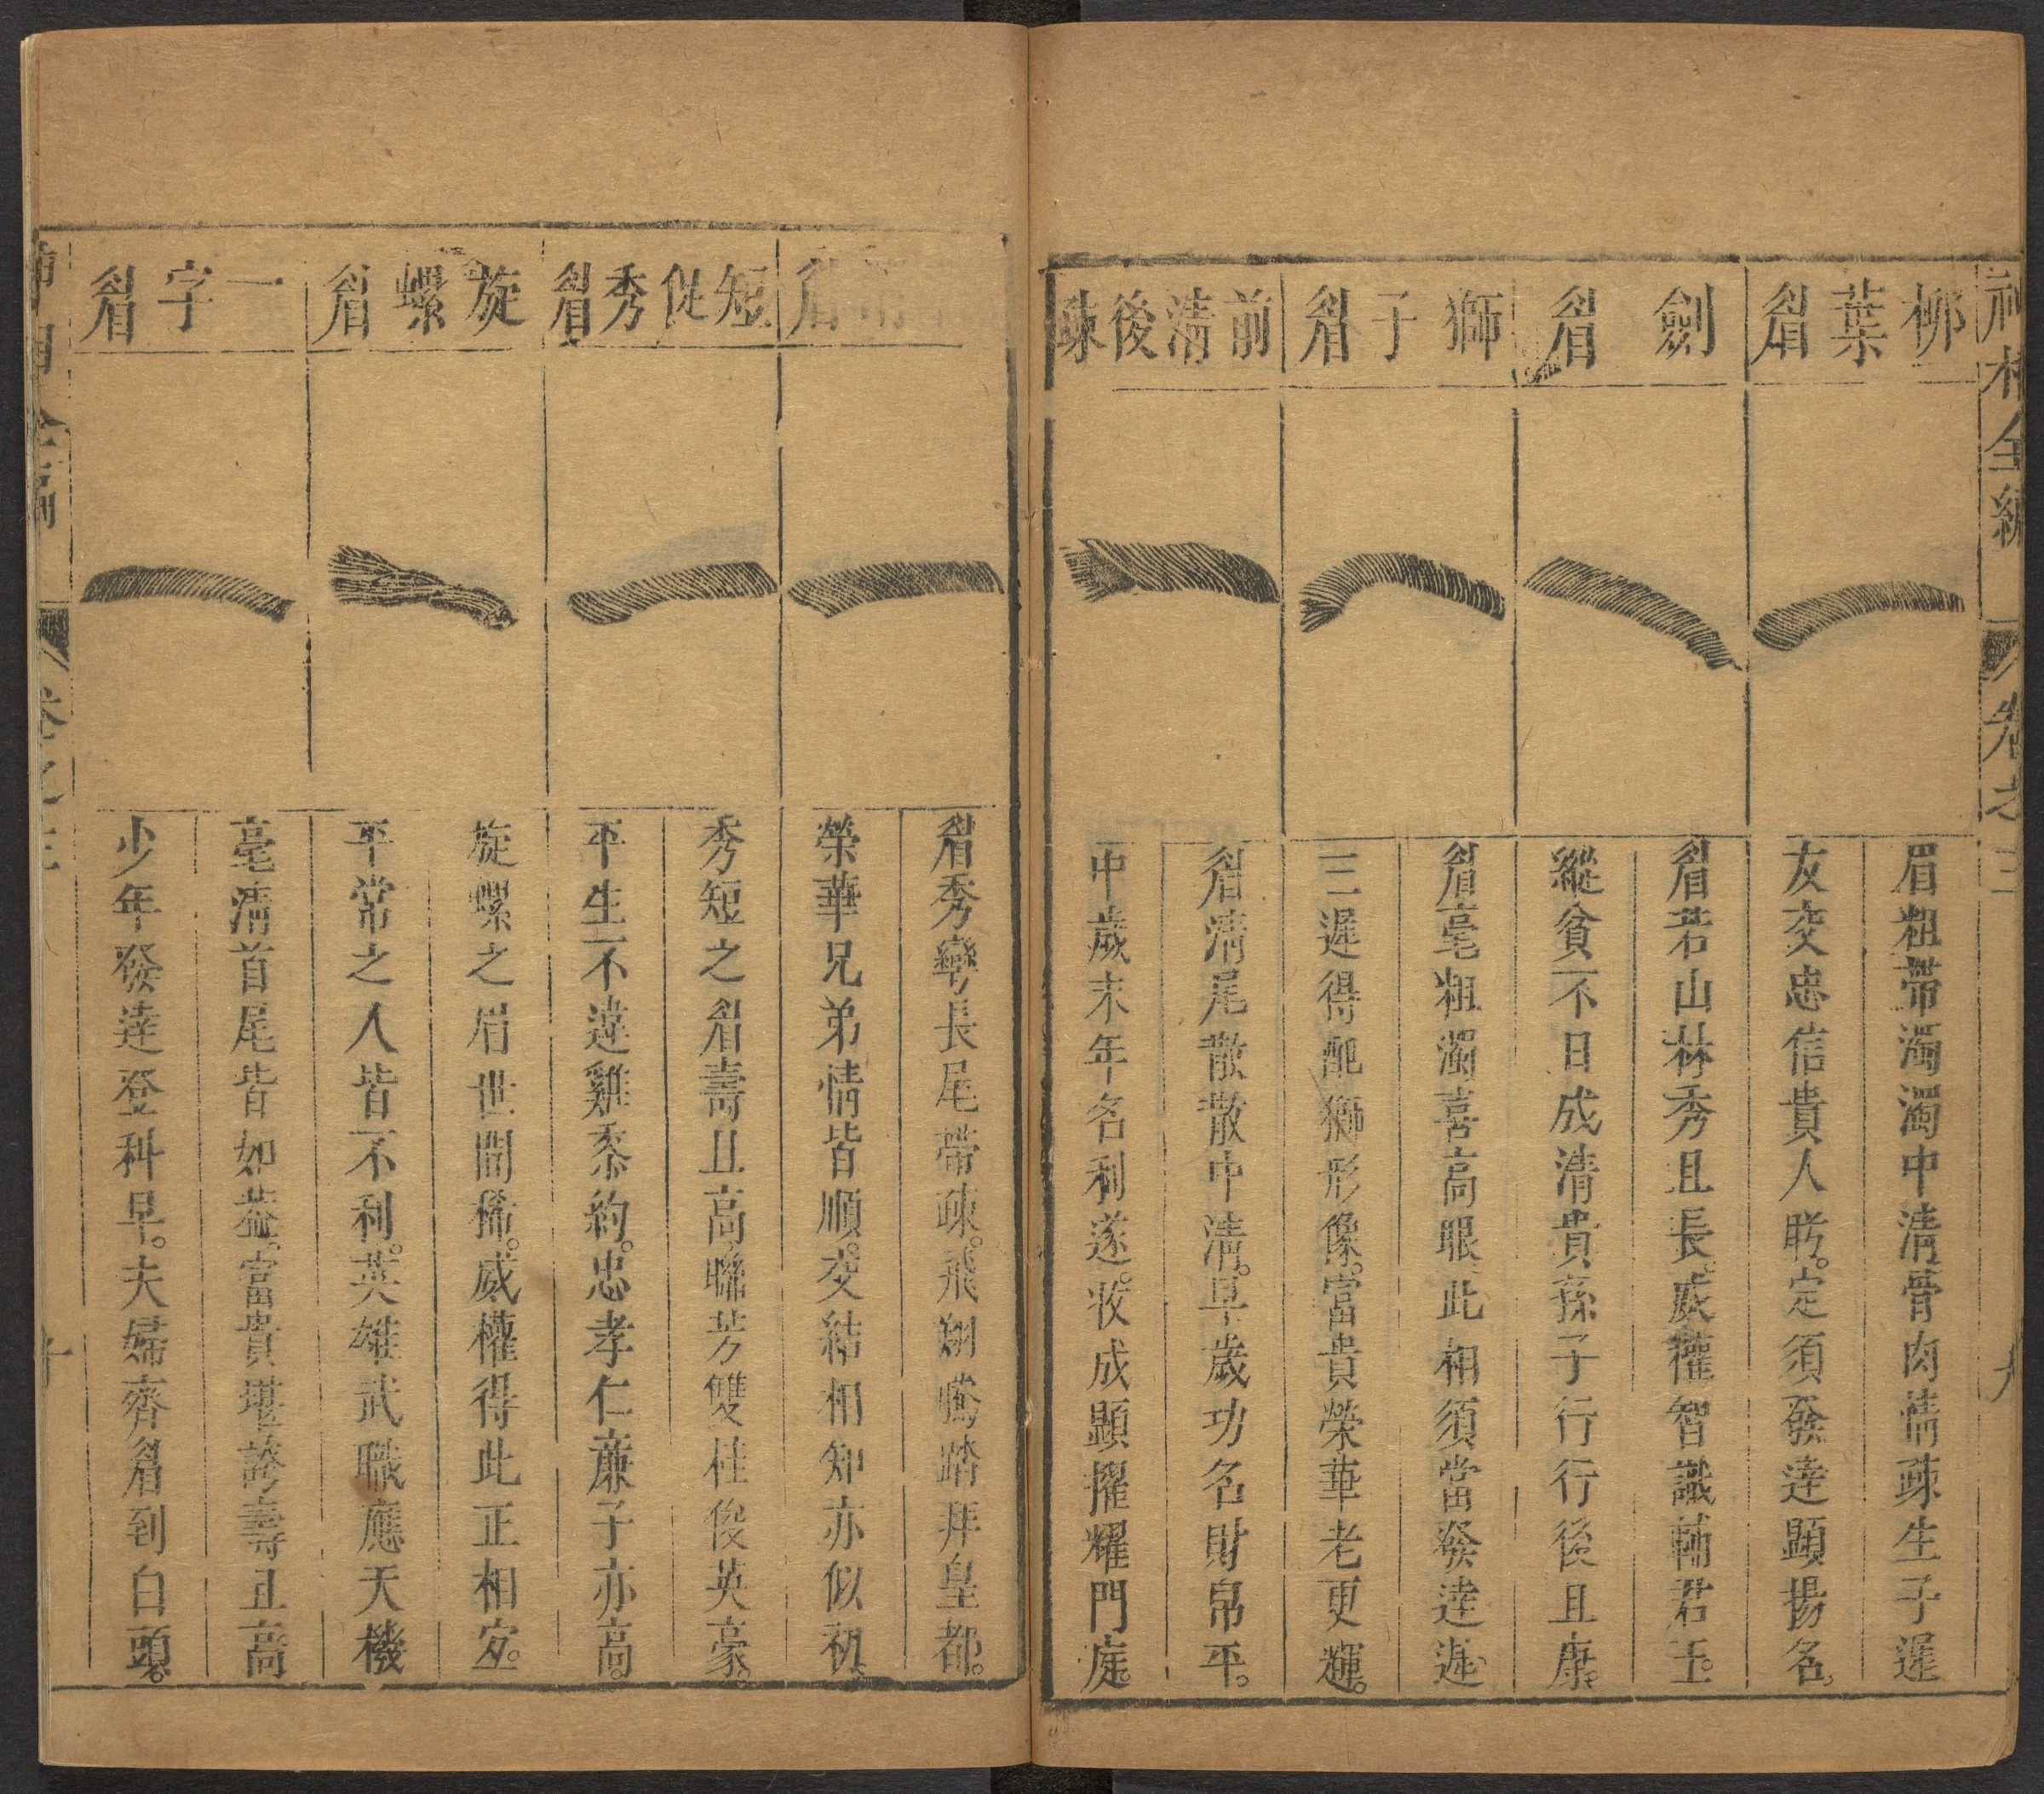 神相全編 卷之三 九
柳葉眉
眉粗帶濁濁中清骨肉情疎生子遲
友交忠信貴人眄。定須發達顯揚名。
劍眉
眉若山林秀且長。威權智識輔君王。
縱貧不日成清貴孫子行行後且康。
獅子眉
眉毫粗濁喜高眼此相須當發達遲
三遲得配獅形像。富貴榮華老更輝。
前清後疎
眉清尾散散中清。早歲功名財帛平。
中歲末年名利遂。收成顯擢耀門庭。
眉
眉秀彎長尾帶疎。飛翔騰踏拜皇都。
榮華兄弟情皆順。交結相知亦似初。
短促秀眉
秀短之眉壽且高聯芳雙桂俊英豪。
平生不違雞黍約。忠孝仁廉子亦高。
旋螺眉
旋螺之眉世間稀。威權得此正相宜。
平常之人皆不利。英雄武職應天機
一字眉
毫清首尾皆如蓋。富貴堪誇壽正高
少年發達登科早。夫婦齊眉到白頭。
神相全編 卷之三 十